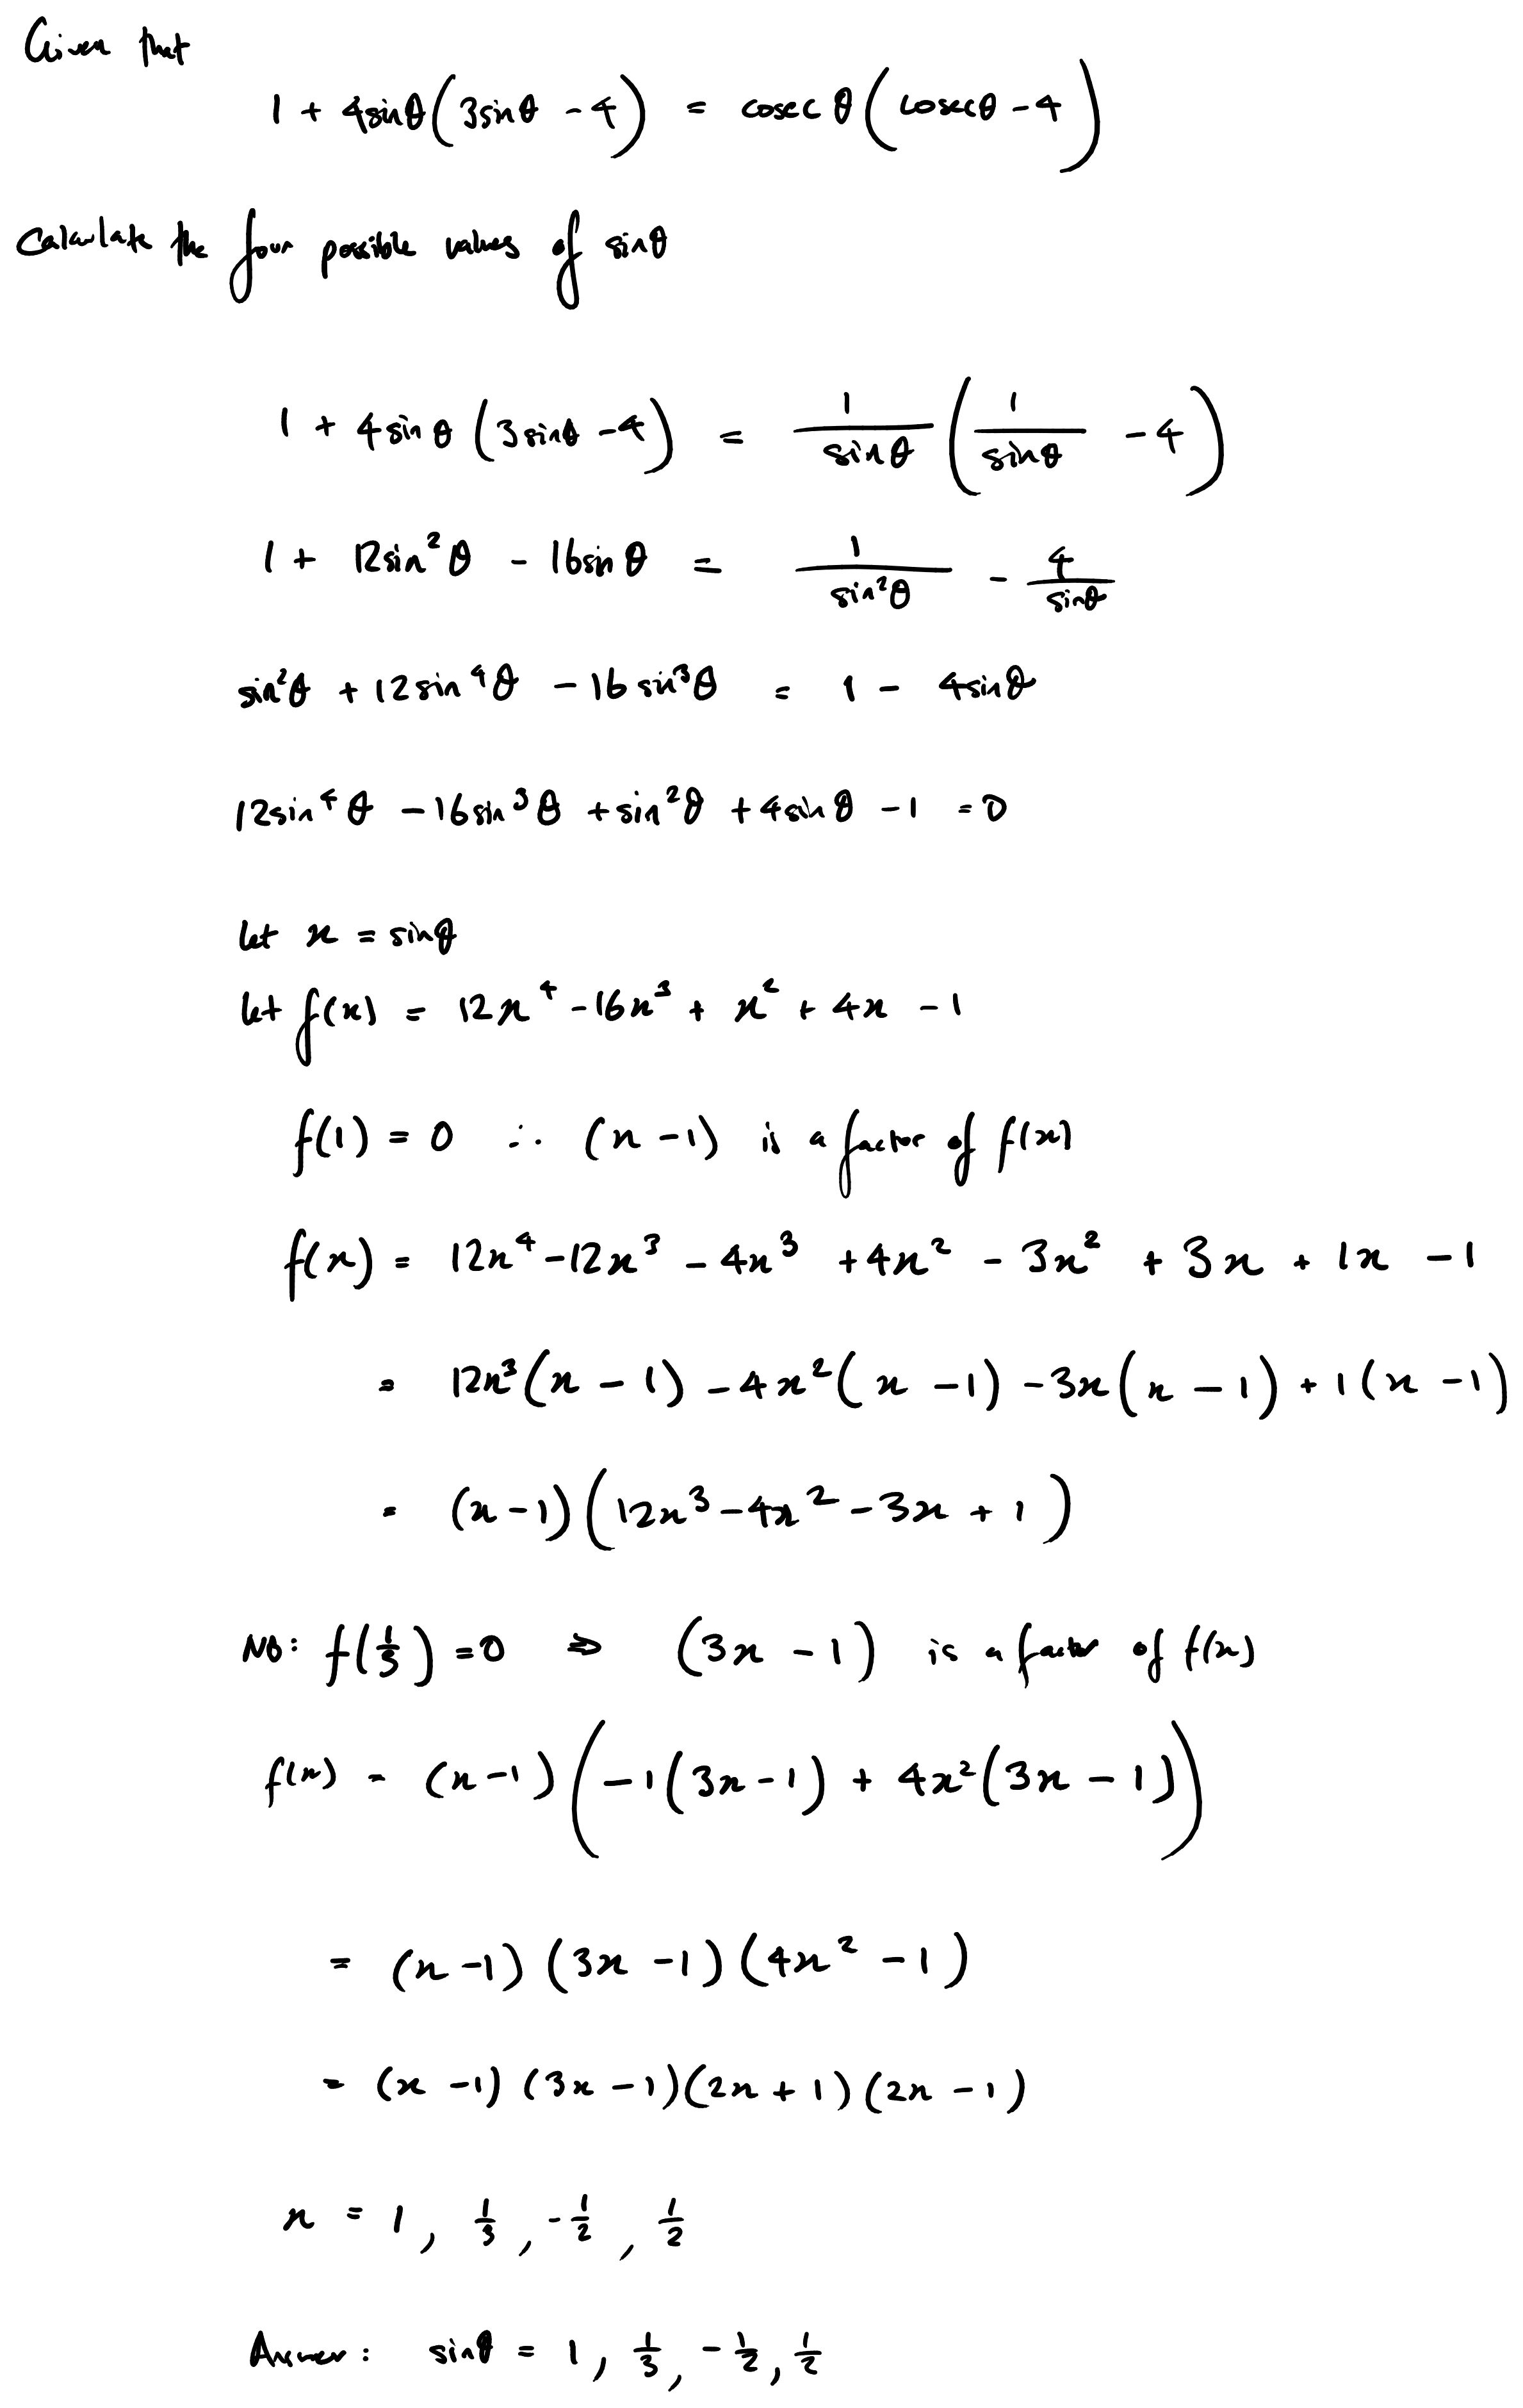 Given that
1 + 4sinθ(3sinθ - 4) = cosec θ(cosecθ - 4)
Calculate the four possible values of sinθ
1 + 4 sin θ (3 sinθ - 4) = 1/sinθ (1/sinθ - 4)
1 + 12sin²θ - 16sin θ = 1/sin²θ - 4/sinθ
sin²θ + 12 sin⁴θ - 16 sin³θ = 1 - 4sinθ
12sin⁴θ - 16sin³θ + sin²θ + 4sin θ - 1 = 0
let x = sinθ
let f(x) = 12x⁴ - 16x³ + x² + 4x - 1
f(1) = 0 ∴ (x - 1) is a factor of f(x)
f(x) = 12x⁴ - 12x³ - 4x³ + 4x² - 3x² + 3x + 1x - 1
= 12x³(x - 1) - 4x²(x - 1) - 3x(x - 1) + 1(x - 1)
= (x - 1)(12x³ - 4x² - 3x + 1)
NB: f(1/3) = 0 ⇒ (3x - 1) is a factor of f(x)
f(x) = (x - 1)(-1(3x - 1) + 4x²(3x - 1))
= (x - 1)(3x - 1)(4x² - 1)
= (x - 1)(3x - 1)(2x + 1)(2x - 1)
x = 1, 1/3, -1/2, 1/2
Answer: sinθ = 1, 1/3, -1/2, 1/2